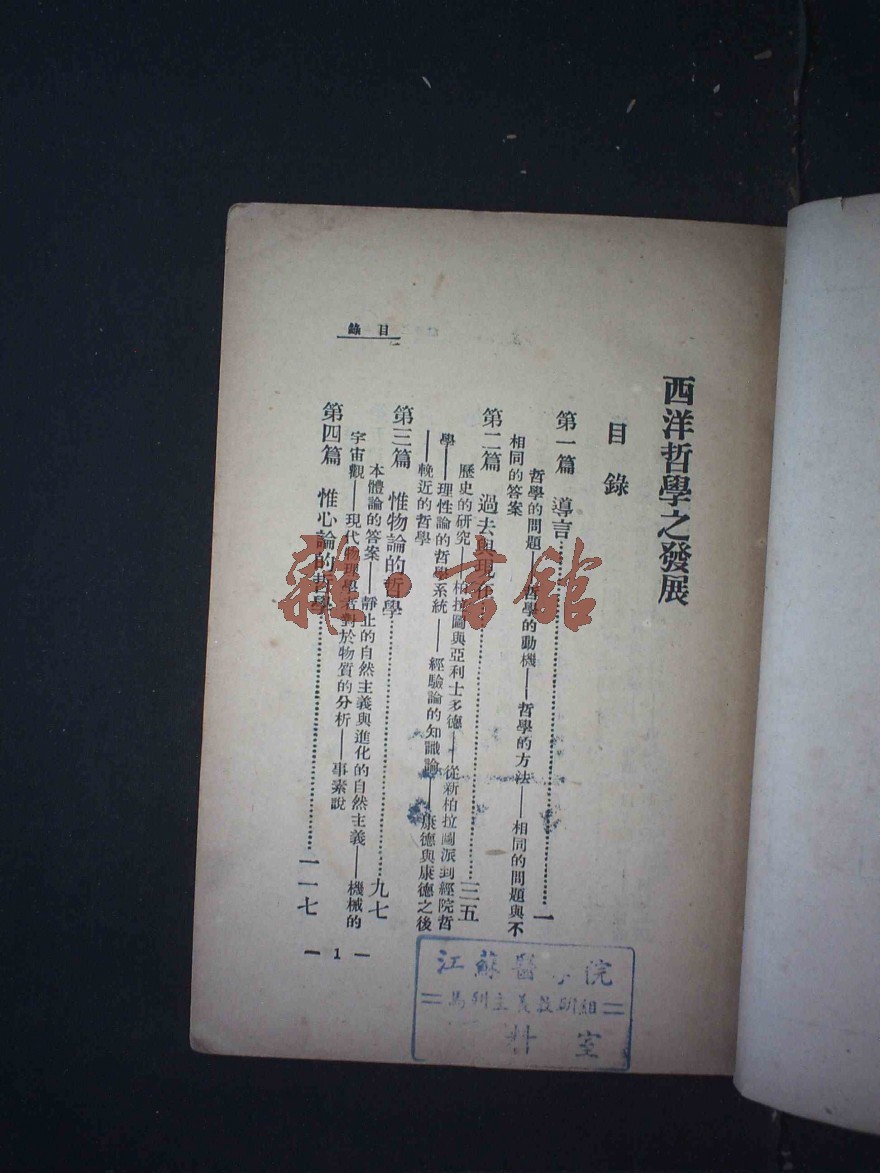 西洋哲學之發展
目錄
第一篇 導言…………一
哲學的問題——哲學的動機——哲學的方法——相同的問題與不
相同的答案
第二篇 過去與現在…………三五
歷史的研究——柏拉圖與亞利士多德——從新柏拉圖派到經院哲
學——理性論的哲學系統——經驗論的知識論——康德與康德之後
——輓近的哲學
第三篇 惟物論的哲學…………九七
本體論的答案——靜止的自然主義與進化的自然主義——機械的
宇宙觀——現代物理學者對於物質的分析——事素說
第四篇 惟心論的哲學…………一一七
目錄
— 1 —
江蘇醫學院
=馬列主義教研組=
料室
雜·書館